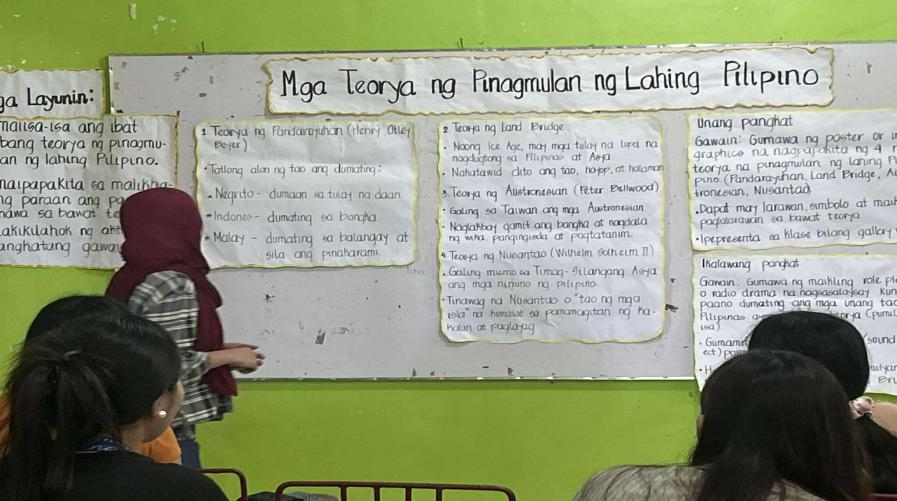 Mga Teorya ng Pinagmulan ng Lahing Pilipino
ga Layunin:
malisa-isa ang ibat
bang teorya ng pinagmu-
an ng lahing Pilipino.
naipapakita sa malikha-
ng paraan ang pa
nawa sa bawat te
akikilahok ng akt
anghatang gawai
1. Teorya ng Pandarayuhan (Henry Otley
Beyer)
• Tatlong alon ng tao ang dumating:
• Negrito- dumaan sa tulay na daan
• Indones- dumating sa bangka
• Malay - dumating sa balangay at
sila ang pinakarami
2. Teorya ng Land Bridge
• Noong Ice Age, may mga tulay na lupa na
nagdugtong sa Pilipinas at Asya.
• Nakatawid dito ang tao, hayop, at halaman
3. Teorya ng Austronesian (Peter Bellwood)
• Galing sa Taiwan ang mga Austronesian
• Naglakbay gamit ang bangka at nagdala
ng wika, pangingisda at pagtatanim.
4. Teorya ng Nusantao (Wilhelm Solheim II)
• Galing mismo sa Timog-Silangang Asya
ang mga ninuno ng pilipino.
• Tinawag na Nusantao o "tao ng mga
isla" na kumalat sa pamamagitan ng ka-
kalan at paglayag
Unang pangkat
Gawain: Gumawa ng poster or i
graphics na nagpapakita ng 4
teorya na pinagmulan ng lahing P
pino (Pandarayuhan, Land Bridge, A
tronesian, Nusantao)
• Dapat may larawan, simbolo at
paglalarawan sa bawat teorya.
• Ipepresenta sa klase bilang gallery
Ikalawang pangkat
Gawain: Gumawa ng maikling role pl
o radio drama na nagsasalaysay kun
paano dumating ang mga unang tao
Pilipinas (pumil
isa)
• Gumamit (sound
ect)